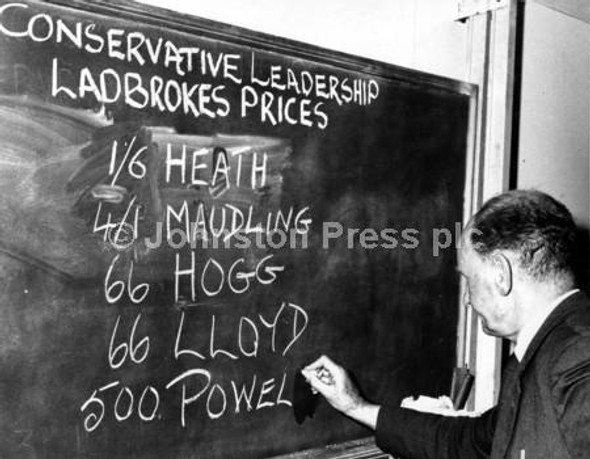 CONSERVATIVE LEADERSHIP
LADBROKES PRICES
1/6 HEATH
4/1 MAUDLING
© Johnston Press plc
66 HOGG
66 LLOYD
500. POWEL